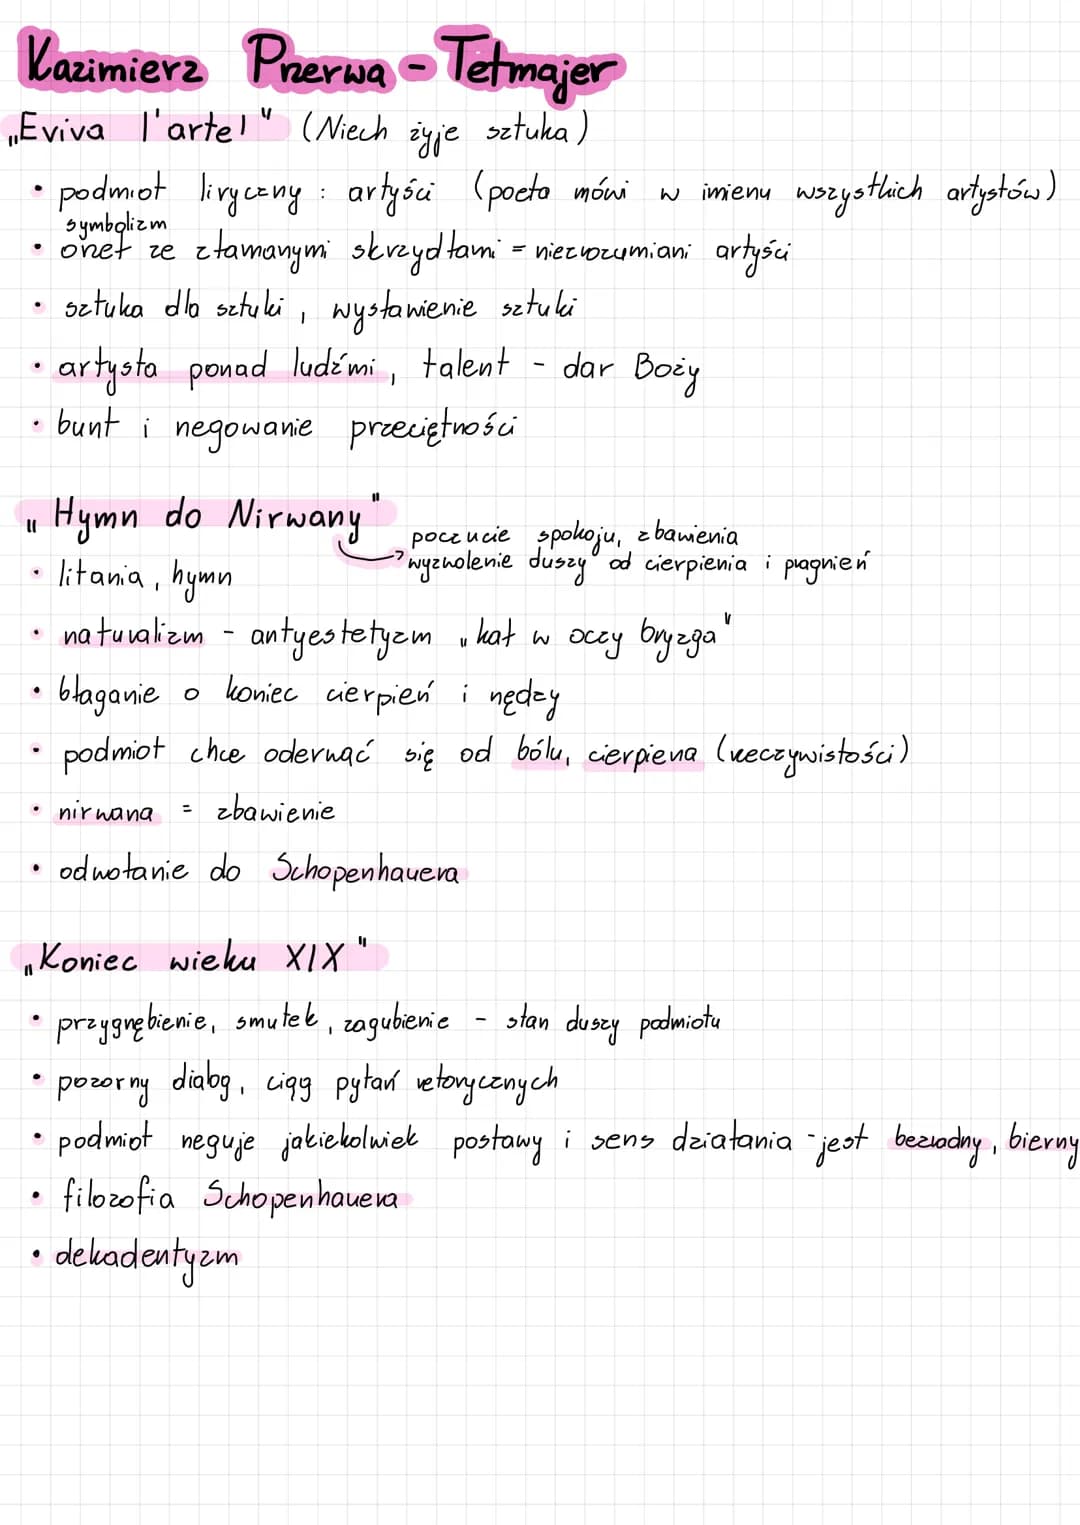 Kazimierz Przerwa-Tetmajer
„Eviva l'arte!" (Niech żyje sztuka)
• podmiot liryczny : artyści (poeta mówi w imienu wszystkich artystów)
symbolizm
• orzeł ze złamanymi skrzydłami = niezrozumiani artyści
• sztuka dla sztuki, wysławienie sztuki
• artysta ponad ludźmi, talent - dar Boży
• bunt i negowanie przeciętności
„Hymn do Nirwany"
poczucie spokoju, zbawienia
→ wyzwolenie duszy od cierpienia i pragnień
• litania, hymn
• naturalizm - antyestetyzm „kał w oczy bryzga"
• błaganie o koniec cierpień i nędzy
• podmiot chce oderwać się od bólu, cierpiena (rzeczywistości)
• nirwana = zbawienie
• odwołanie do Schopenhauera
„Koniec wieku XIX"
• przygnębienie, smutek, zagubienie - stan duszy podmiotu
• pozorny dialog, ciąg pytań retorycznych
• podmiot neguje jakiekolwiek postawy i sens działania - jest bezradny, bierny
• filozofia Schopenhauera
• dekadentyzm